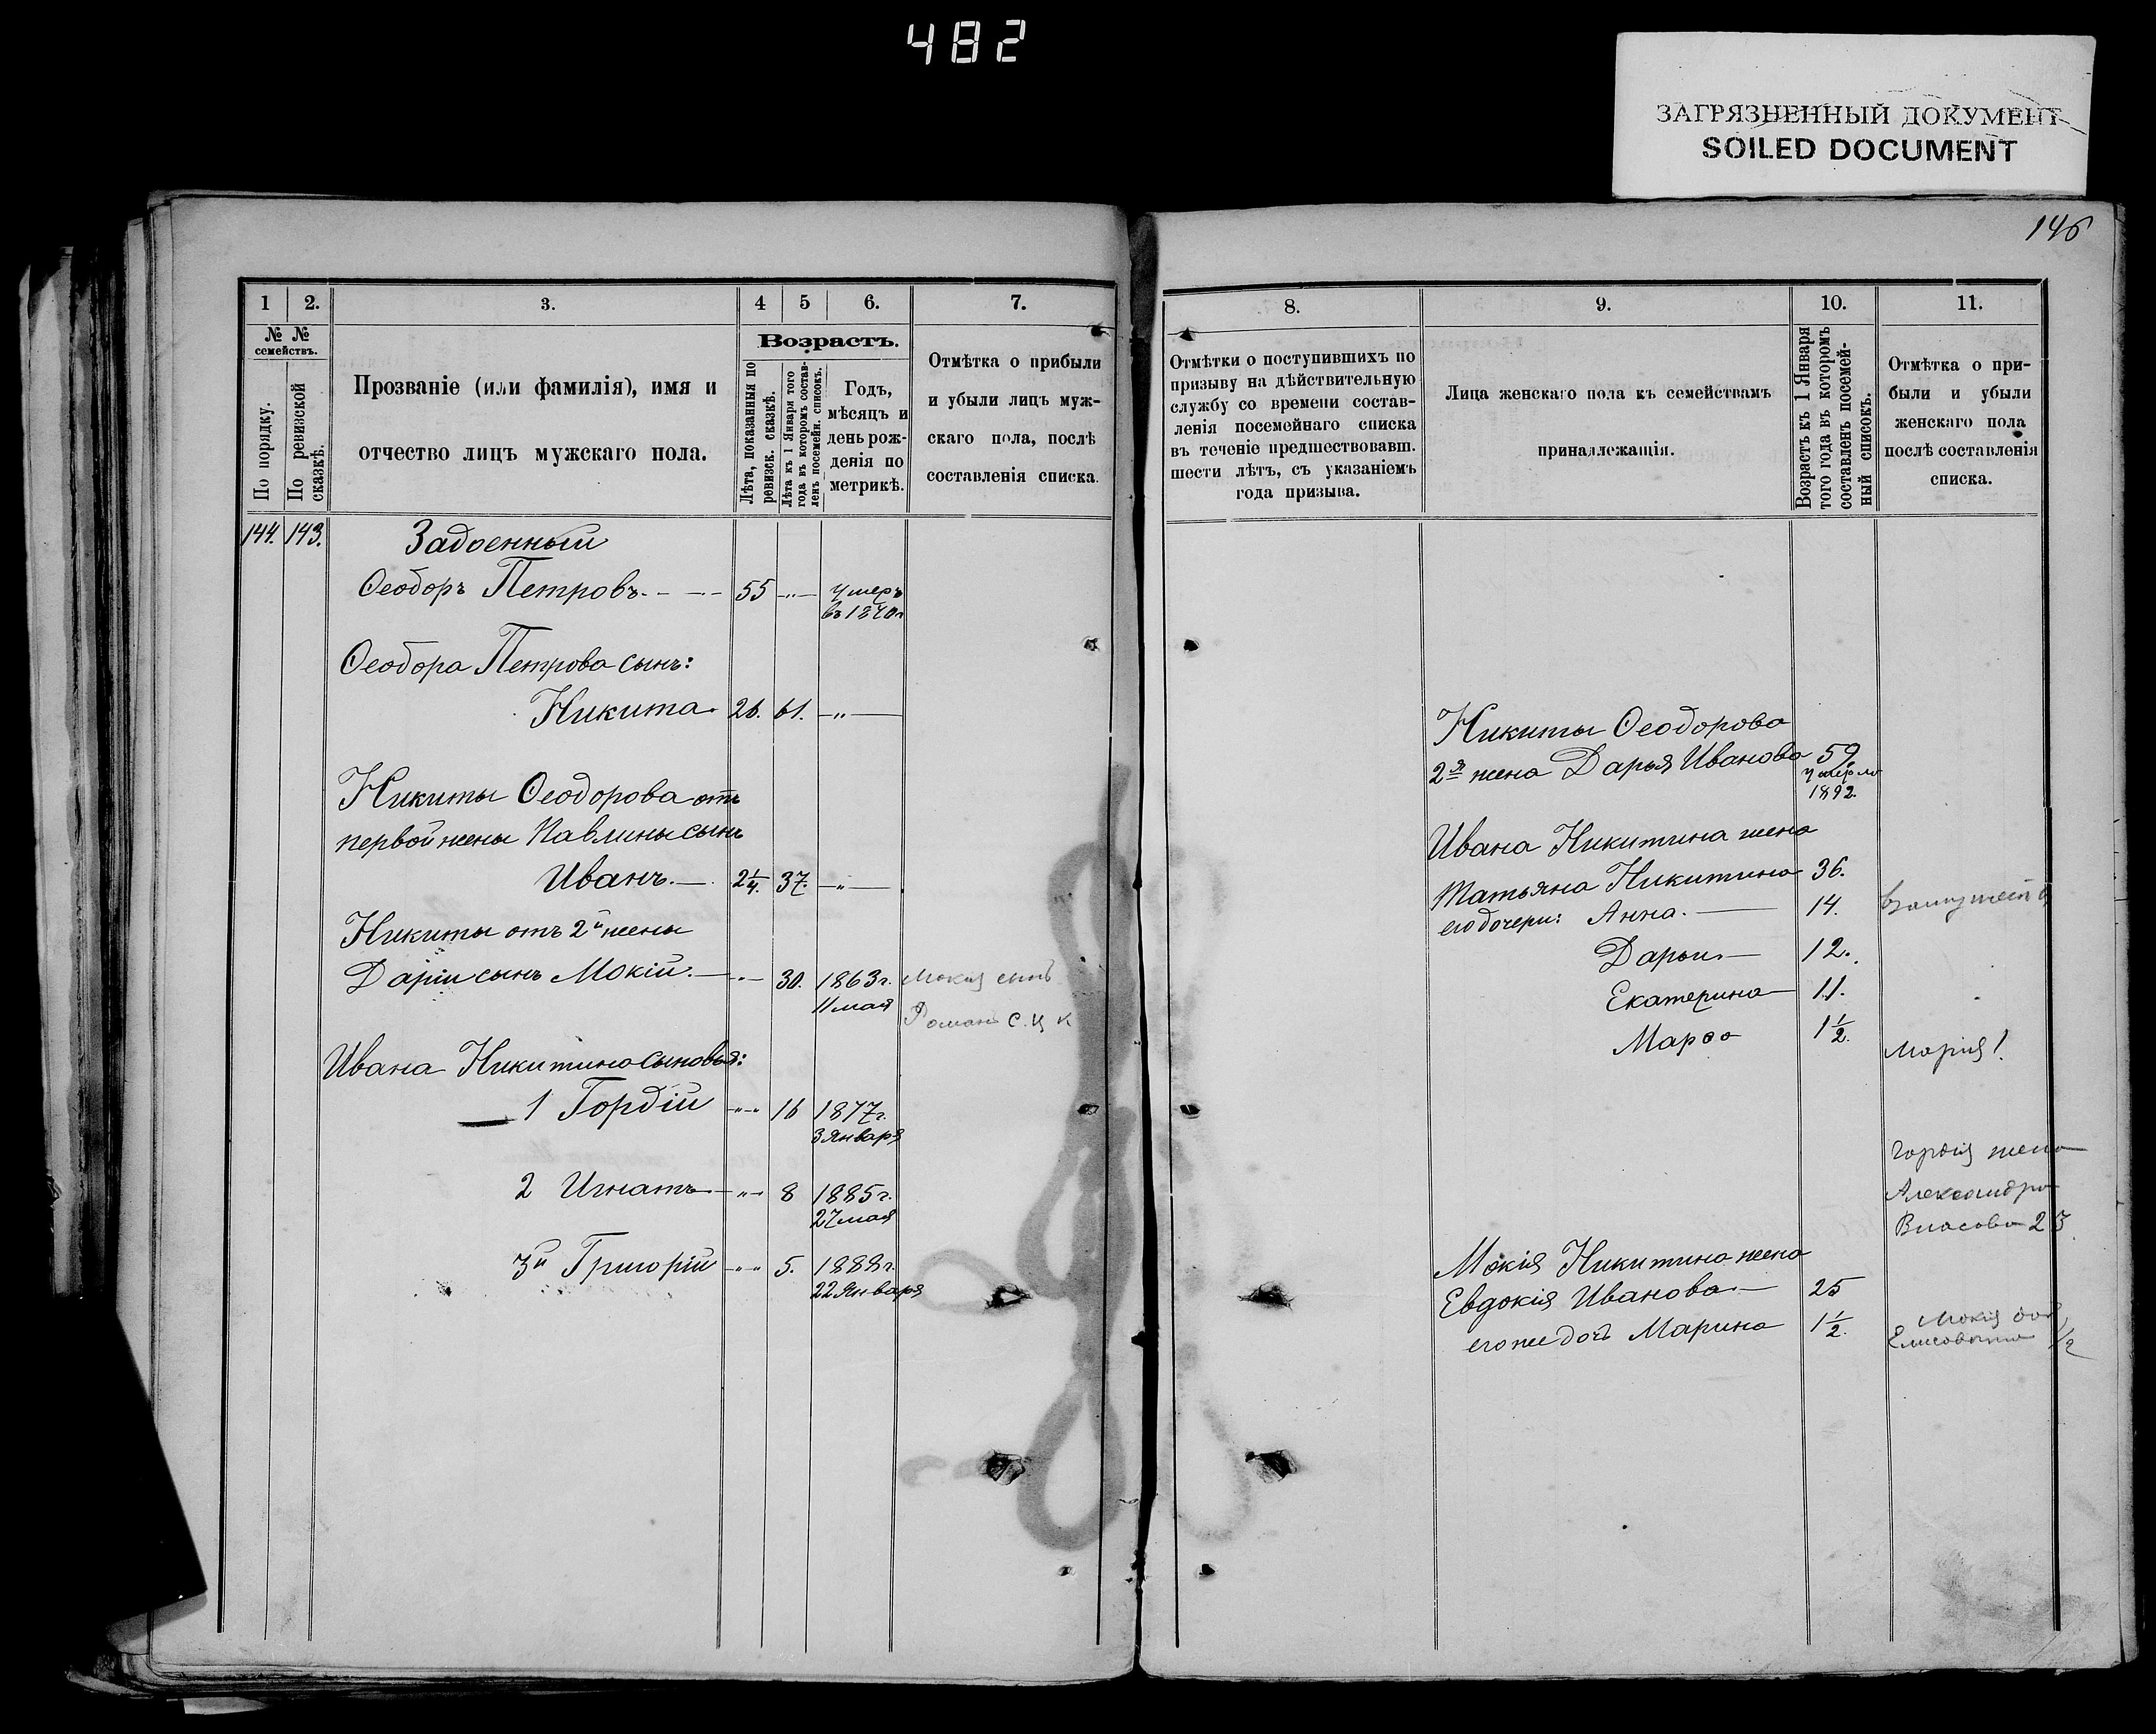 482
ЗАГРЯЗНЕННЫЙ ДОКУМЕНТ
SOILED DOCUMENT
146
1
2.
3.
4
5
6.
7.
№ №
семействъ.
По порядку.
По ревизской
сказкѣ.
Прозваніе (или фамилія), имя и
отчество лицъ мужскаго пола.
Возрастъ.
Лѣта, показанныя по
ревизск. сказкѣ.
Лѣта къ 1 Января того
года въ которомъ состав-
ленъ посемейн. списокъ.
Годъ,
мѣсяцъ и
день рож-
денія по
метрикѣ.
Отмѣтка о прибыли
и убыли лицъ муж-
скаго пола, послѣ
составленія списка.
144. 143. Задоенный
Ѳеодоръ Петровъ. 55 -„- умеръ
въ 1870г
Ѳеодора Петрова сынъ:
Никита. 26. 61. -„-
Никиты Ѳеодорова отъ
первой жены Павлины сынъ
Иванъ. 2¼. 37. -„-
Никиты отъ 2й жены
Даріи сынъ Мокій. -„- 30. 1863г. Мокія сынъ
11 мая Романъ
Ивана Никитина сыновья:
1 Гордій -„- 16 1877г.
3 Января
2 Игнатъ -„- 8 1885г.
27 мая
3й Григорій -„- 5. 1888г.
22 Января
8.
9.
10.
11.
Отмѣтки о поступившихъ по
призыву на дѣйствительную
службу со времени состав-
ленія посемейнаго списка
въ теченіе предшествовавш.
шести лѣтъ, съ указаніемъ
года призыва.
Лица женскаго пола къ семействамъ
принадлежащія.
Возрастъ къ 1 Января
того года въ которомъ
составленъ посемей-
ный списокъ.
Отмѣтка о при-
были и убыли
женскаго пола
послѣ составленія
списка.
Никиты Ѳеодорова
2я жена Дарья Иванова 59
умерла
1892.
Ивана Никитина жена
Татьяна Никитина 36.
его дочери: Анна. 14. Взамужест
Дарья 12.
Екатерина 11.
Марѳа 1½.
Марія 1.
Гордія жена
Александра
Власова 23
Мокія Никитина жена
Евдокія Иванова 25
его же дочь Марина 1½.
Мокія доч
Елисавета ½